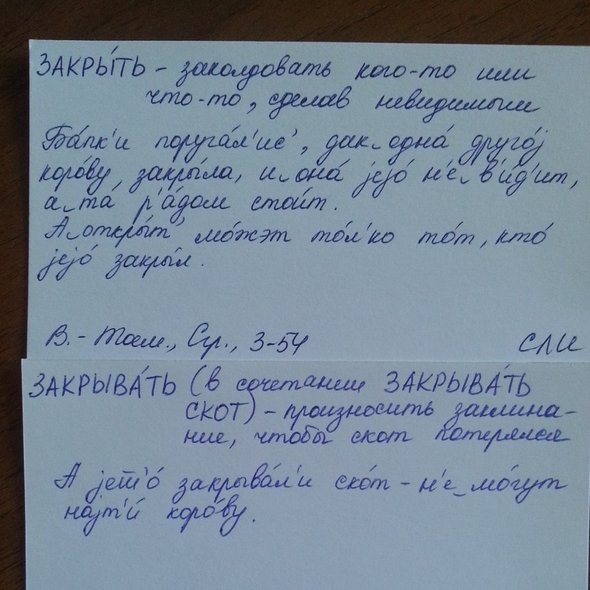 ЗАКРЫ́ТЬ – заколдовать кого-то или
что-то, сделав невидимым
Ба́пк'и поруга́л'ис', дак‿одна́ друго́j
коро́ву закры́ла, и‿она́ jejо́ н'е‿в'и́д'ит,
а‿та́ р'а́дом стои́т.
А‿откры́т' мо́жэт то́л'ко то́т, кто́
jejо́ закры́л.
В.-Тот., Сур., 3-54 СЛИ
ЗАКРЫВА́ТЬ (в сочетании ЗАКРЫВА́ТЬ
СКОТ) – произносить заклина-
ние, чтобы скот потерялся
А jет'о́ закрыва́л'и ско́т – н'е‿мо́гут
наjт'и́ коро́ву.